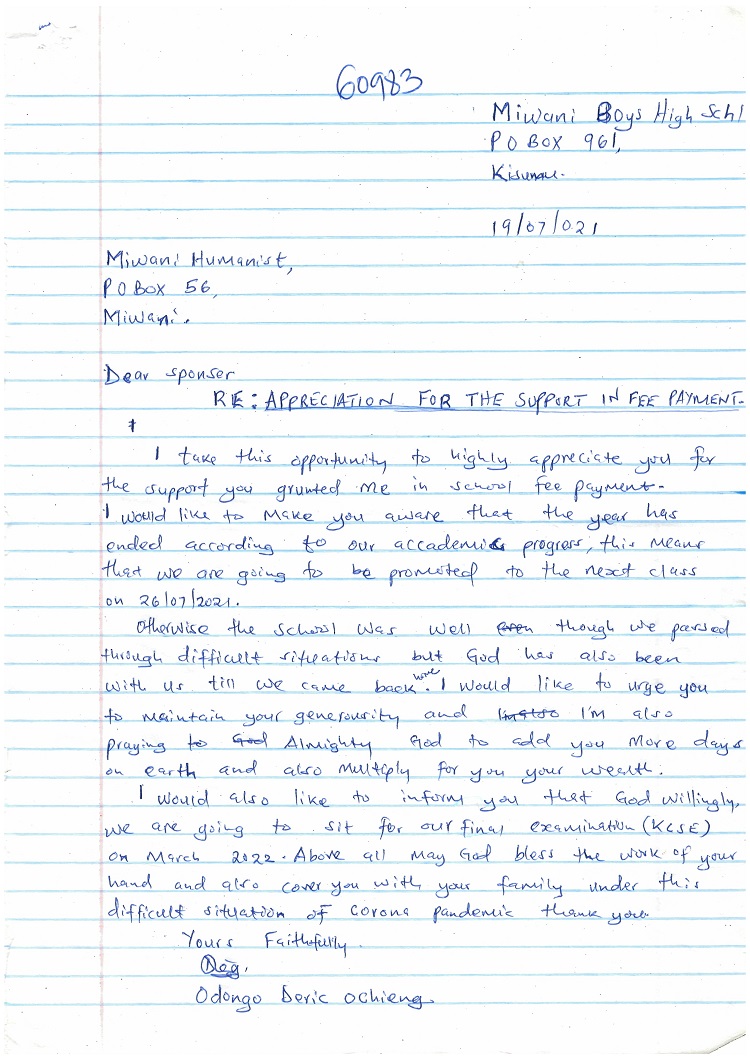 60983
Miwani Boys High Schl
P O BOX 961,
Kisumu.
19/07/021
Miwani Humanist,
P O BOX 56,
Miwani.
Dear sponser
RE: APPRECIATION FOR THE SUPPORT IN FEE PAYMENT.
I take this opportunity to highly appreciate you for
the support you grunted me in school fee payment.
I would like to make you aware that the year has
ended according to our accademic progress, this means
that we are going to be promoted to the next class
on 26/07/2021.
Otherwise the school was well even though we passed
through difficult situations but God has also been
with us till we came back home. I would like to urge you
to maintain your generousity and I'm also
praying to God Almighty God to add you more days
on earth and also multiply for you your wealth.
I would also like to inform you that God willingly,
we are going to sit for our final examination (KCSE)
on March 2022. Above all may God bless the work of your
hand and also cover you with your family under this
difficult situation of corona pandemic thank you.
Yours Faithfully.
Odongo Deric Ochieng.